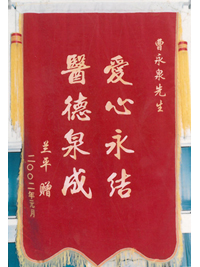 曹永泉先生
愛心永结
醫德泉成
兰平 赠
二〇〇二年元月